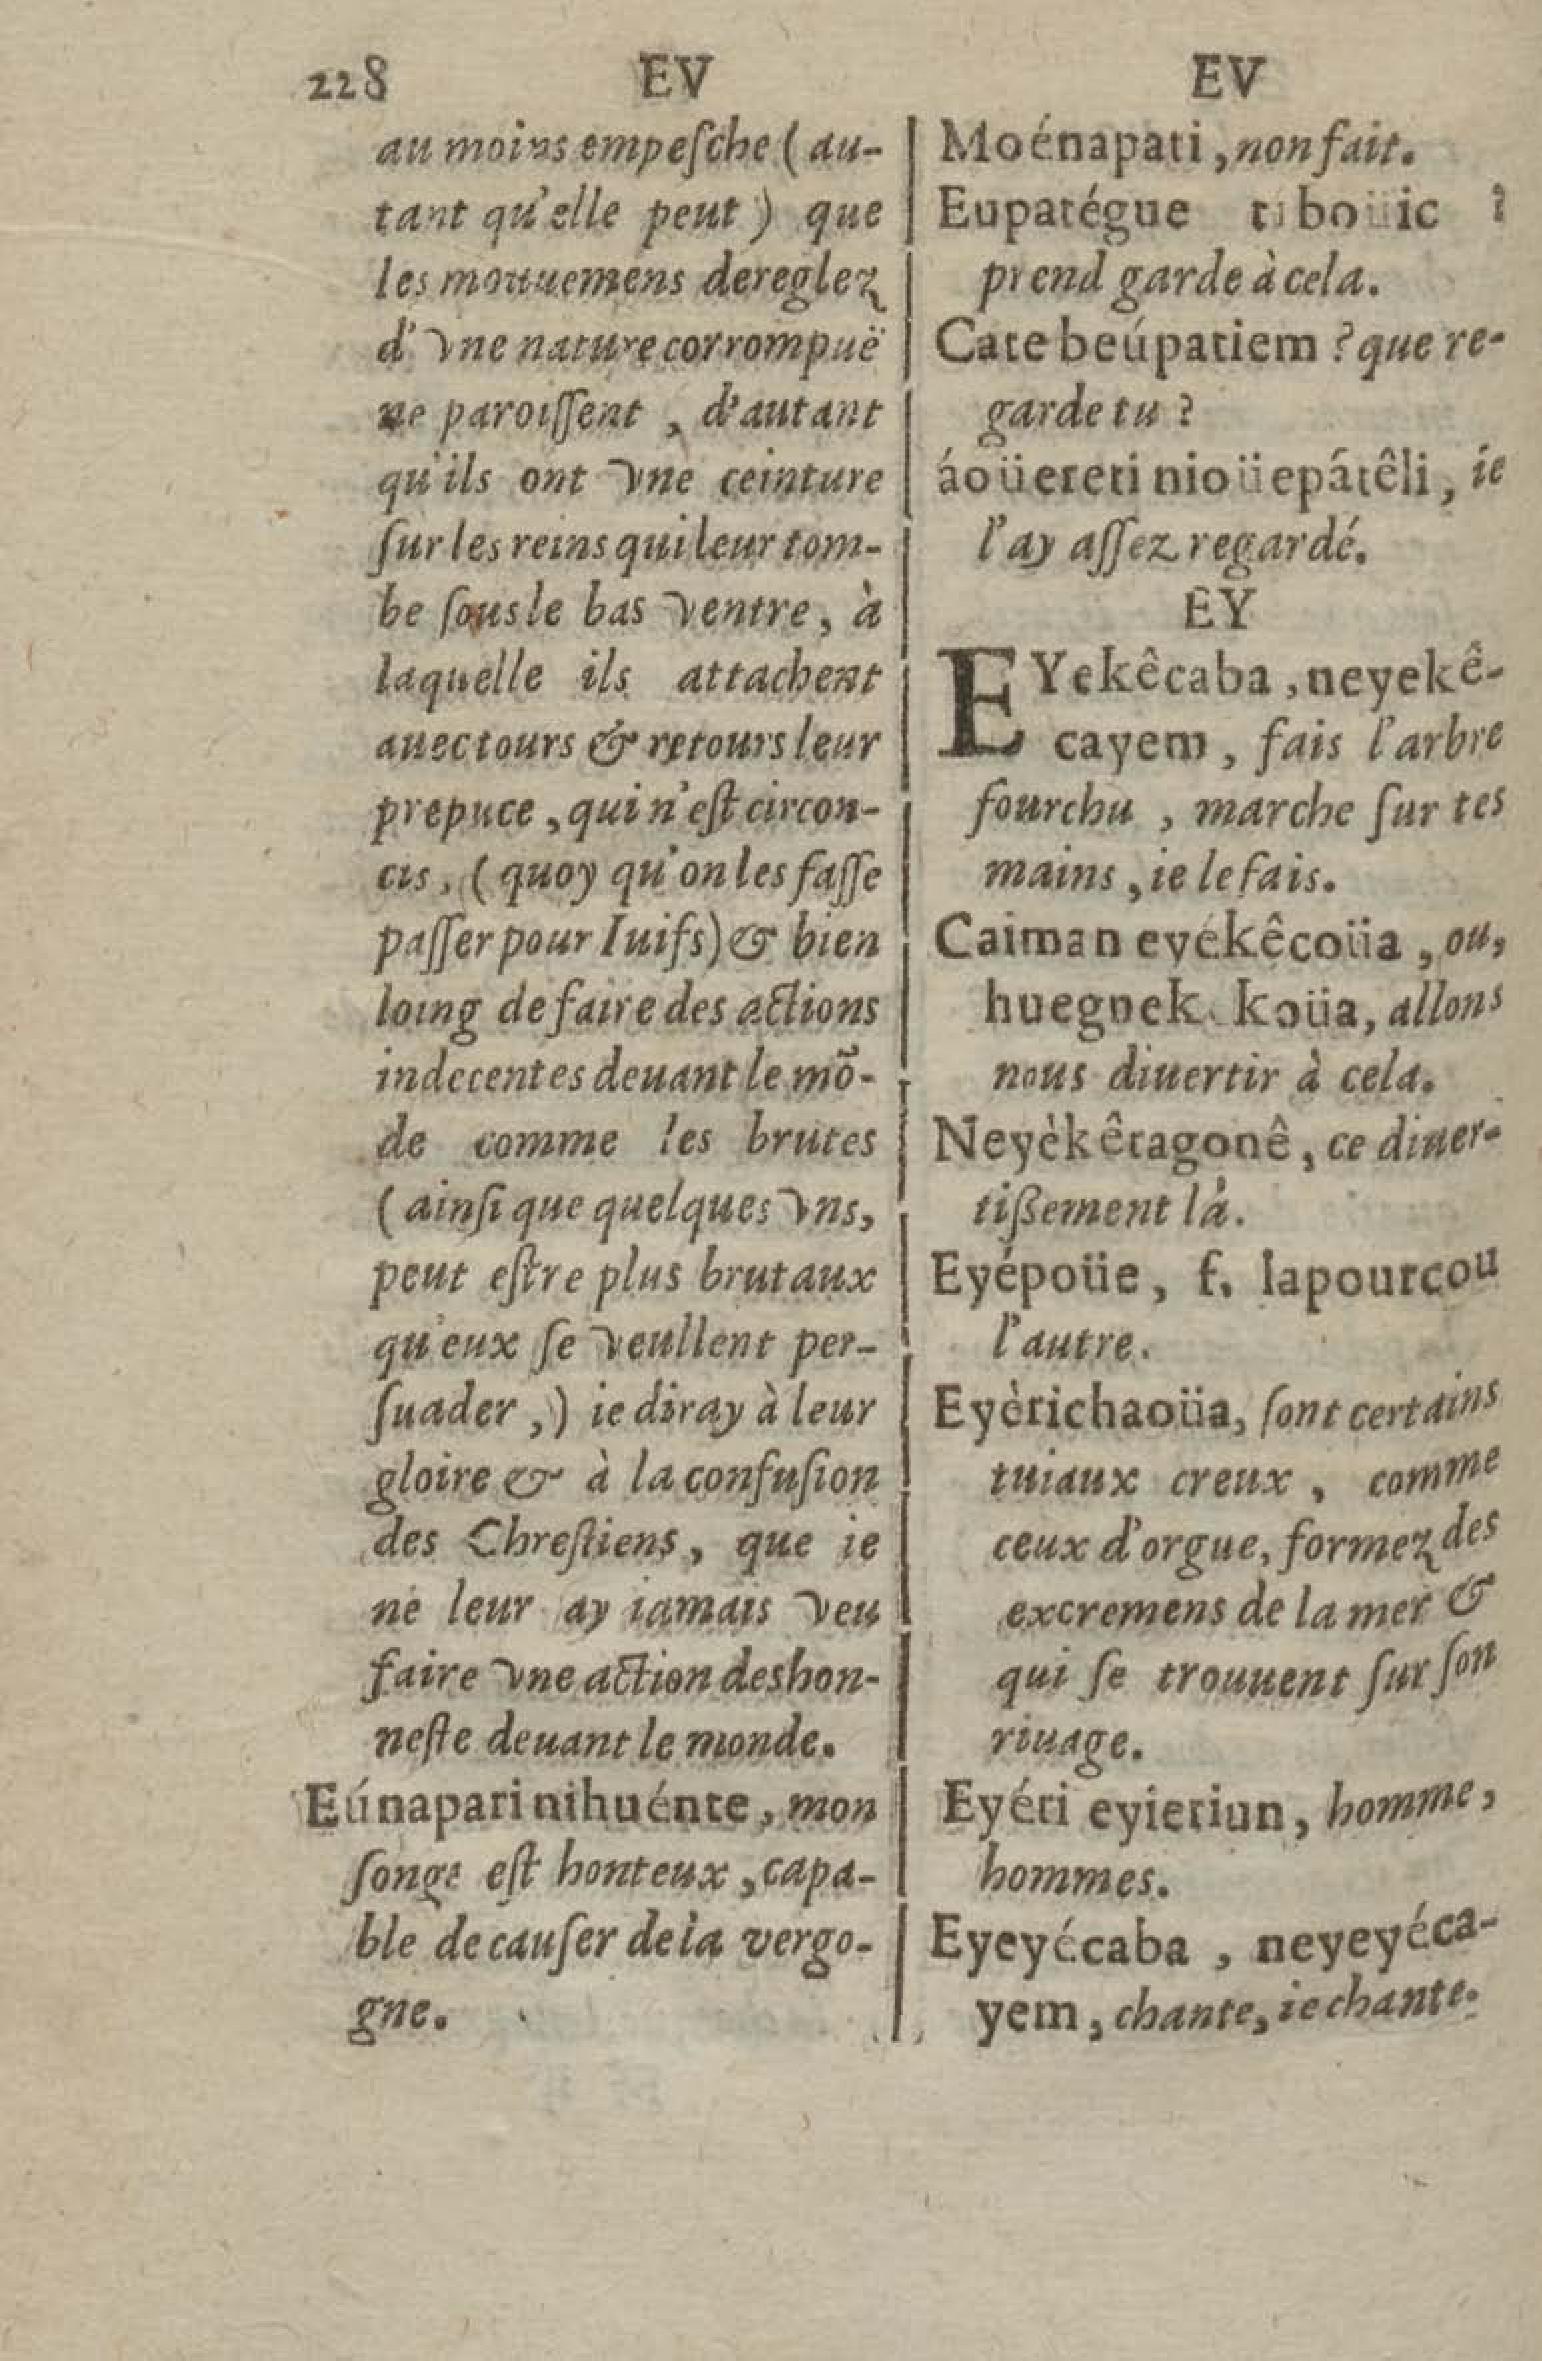 228 EV EV
au moins empeſche (au-
tant qu'elle peut) que
les mouuemens dereglez
d'vne nature corrompuë
ne paroiſſent, d'autant
qu'ils ont vne ceinture
ſur les reins qui leur tom-
be ſous le bas ventre, à
laquelle ils attachent
auec tours & retours leur
prepuce, qui n'eſt circon-
cis, (quoy qu'on les faſſe
paſſer pour Iuifs) & bien
loing de faire des actions
indecentes deuant le mõ-
de comme les brutes
(ainſi que quelques vns,
peut eſtre plus brutaux
qu'eux ſe veullent per-
ſuader,) ie diray à leur
gloire & à la confuſion
des Chreſtiens, que ie
ne leur ay iamais veu
faire vne action deshon-
neſte deuant le monde.
Eúnapari nihuénte, mon
ſonge eſt honteux, capa-
ble de cauſer de la vergo-
gne.
Moénapati, non fait.
Eupatégue boüic ?
prend garde à cela.
Cate beúpatiem ? que re-
garde tu ?
áoüereti nioüepátêli, ie
l'ay aſſez regardé.
EY
EYekêcaba, neyekê-
cayem, fais l'arbre
fourchu, marche ſur tes
mains, ie le fais.
Caiman eyékêcoüa, ou,
koüa, allons
nous diuertir à cela.
Neyèkêtagonê, ce diuer-
tißement là.
Eyépoüe, f. lapourcou
l'autre.
Eyèrichaoüa, ſont certains
tuiaux creux, comme
ceux d'orgue, formez des
excremens de la mer &
qui ſe trouuent ſur ſon
riuage.
Eyéri eyieriun, homme,
hommes.
Eyeyécaba, neyeyéca-
yem, chante, ie chante.